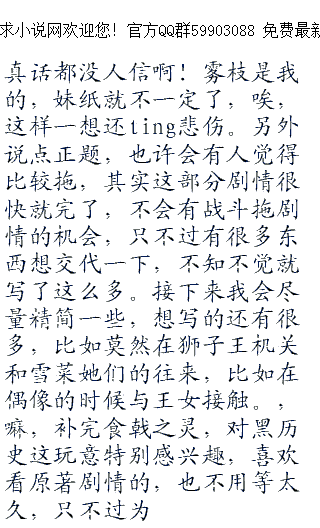 求小说网欢迎您！官方QQ群59903088 免费最新
真话都没人信啊！雾枝是我
的，妹纸就不一定了，唉，
这样一想还ting悲伤。另外
说点正题，也许会有人觉得
比较拖，其实这部分剧情很
快就完了，不会有战斗拖剧
情的机会，只不过有很多东
西想交代一下，不知不觉就
写了这么多。接下来我会尽
量精简一些，想写的还有很
多，比如莫然在狮子王机关
和雪菜她们的往来，比如在
偶像的时候与王女接触。，
嘛，补完食戟之灵，对黑历
史这玩意特别感兴趣，喜欢
看原著剧情的，也不用等太
久，只不过为